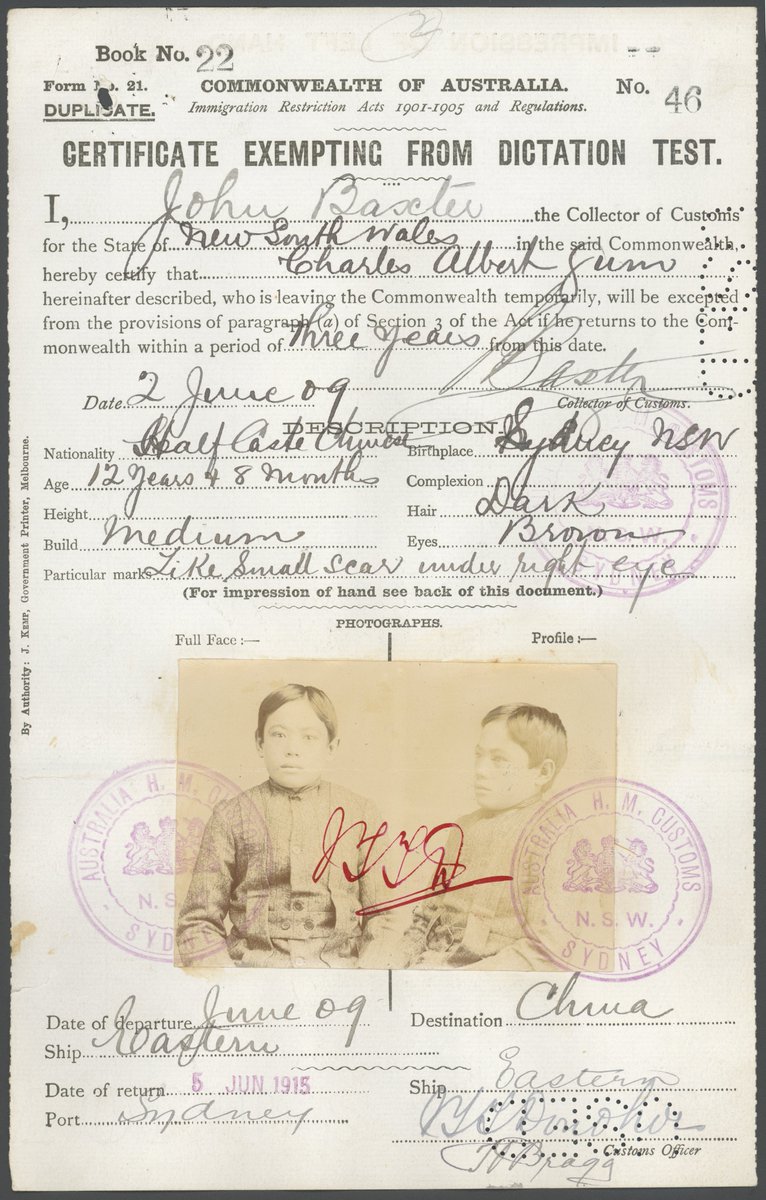 Book No. 22
Form No. 21. COMMONWEALTH OF AUSTRALIA. No. 46
DUPLICATE. Immigration Restriction Acts 1901-1905 and Regulations.
CERTIFICATE EXEMPTING FROM DICTATION TEST.
I, John Baxter the Collector of Customs
for the State of New South Wales in the said Commonwealth,
hereby certify that Charles Albert Gum
hereinafter described, who is leaving the Commonwealth temporarily, will be excepted
from the provisions of paragraph (a) of Section 3 of the Act if he returns to the Com-
monwealth within a period of Three Years from this date.
Baxter
Date 2 June 09 Collector of Customs.
DESCRIPTION.
Nationality Half Caste Chinese Birthplace Sydney NSW
Age 12 Years & 8 Months Complexion
Height Hair Dark
Build Medium Eyes Brown
Particular marks Like Small Scar under right eye
(For impression of hand see back of this document.)
PHOTOGRAPHS.
Full Face :— Profile :—
AUSTRALIA H. M. CUSTOMS N. S. W. SYDNEY
AUSTRALIA H. M. CUSTOMS N. S. W. SYDNEY
Date of departure June 09 Destination China
Ship Eastern
Date of return 5 JUN 1915 Ship Eastern
Port Sydney
Customs Officer
By Authority: J. KEMP, Government Printer, Melbourne.